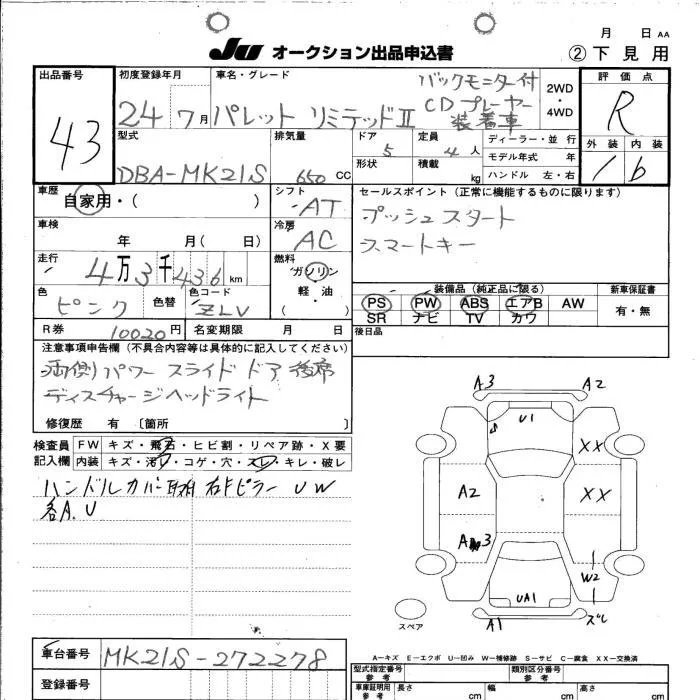 月 日 AA
JU オークション出品申込書 ②下見用
出品番号 43
初度登録年月 24 7月
車名・グレード パレット リミテッドⅡ
バックモニター付
CDプレーヤー
装着車
2WD
・
4WD
評価点 R
外装 1 内装 b
型式 DBA-MK21S
排気量 650 CC
ドア 5
形状
定員 4 人
積載 kg
ディーラー・並行
モデル年式 年
ハンドル 左・右
車歴 自家用・( )
シフト AT
セールスポイント(正常に機能するものに限ります)
プッシュスタート
スマートキー
車検 年 月( 日)
冷房 AC
走行 4万3千436 km
燃料 ガソリン
軽・油
( )
色 ピンク 色替 色コード ZLV
装備品(純正品に限る) 新車保証書
PS PW ABS エアB AW 有・無
SR ナビ TV カワ
R券 10020円 名変期限 月 日
後日品
注意事項申告欄(不具合内容等は具体的に記入してください)
両側パワースライドドア 後席
ディスチャージヘッドライト
修復歴 有 〔箇所 〕
検査員 FW キズ・飛石・ヒビ割・リペア跡・X要
記入欄 内装 キズ・汚レ・コゲ・穴・スレ・キレ・破レ
ハンドルカバー取付 右Fピラー UW
各A.U
A3 A2
U1
XX
A2 XX
A 3
W2
UA1
A1 スレ
スペア
A―キズ E―エクボ U―凹み W―補修跡 S―サビ C―腐食 XX―交換済
車台番号 MK21S-272278
登録番号
型式指定番号
参考
類別区分番号
参考
車庫証明用
参考
長さ cm 幅 cm 高さ cm